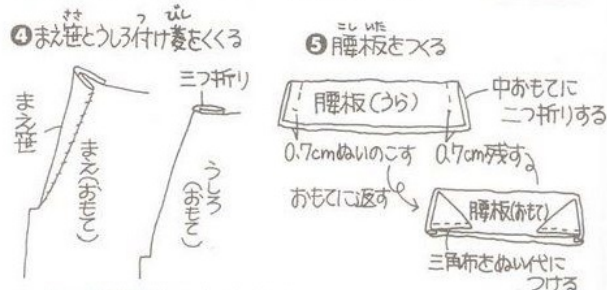 ❹まえ笹とうしろ付け菱をくくる
ささ
つ
びし
三つ折り
まえ笹
まえ(おもて)
うしろ
(おもて)
❺腰板をつくる
こし いた
腰板(うら)
中おもてに
二つ折りする
0.7cmぬいのこす
0.7cm残す
おもてに返す
腰板(おもて)
三角布をぬい代に
つける